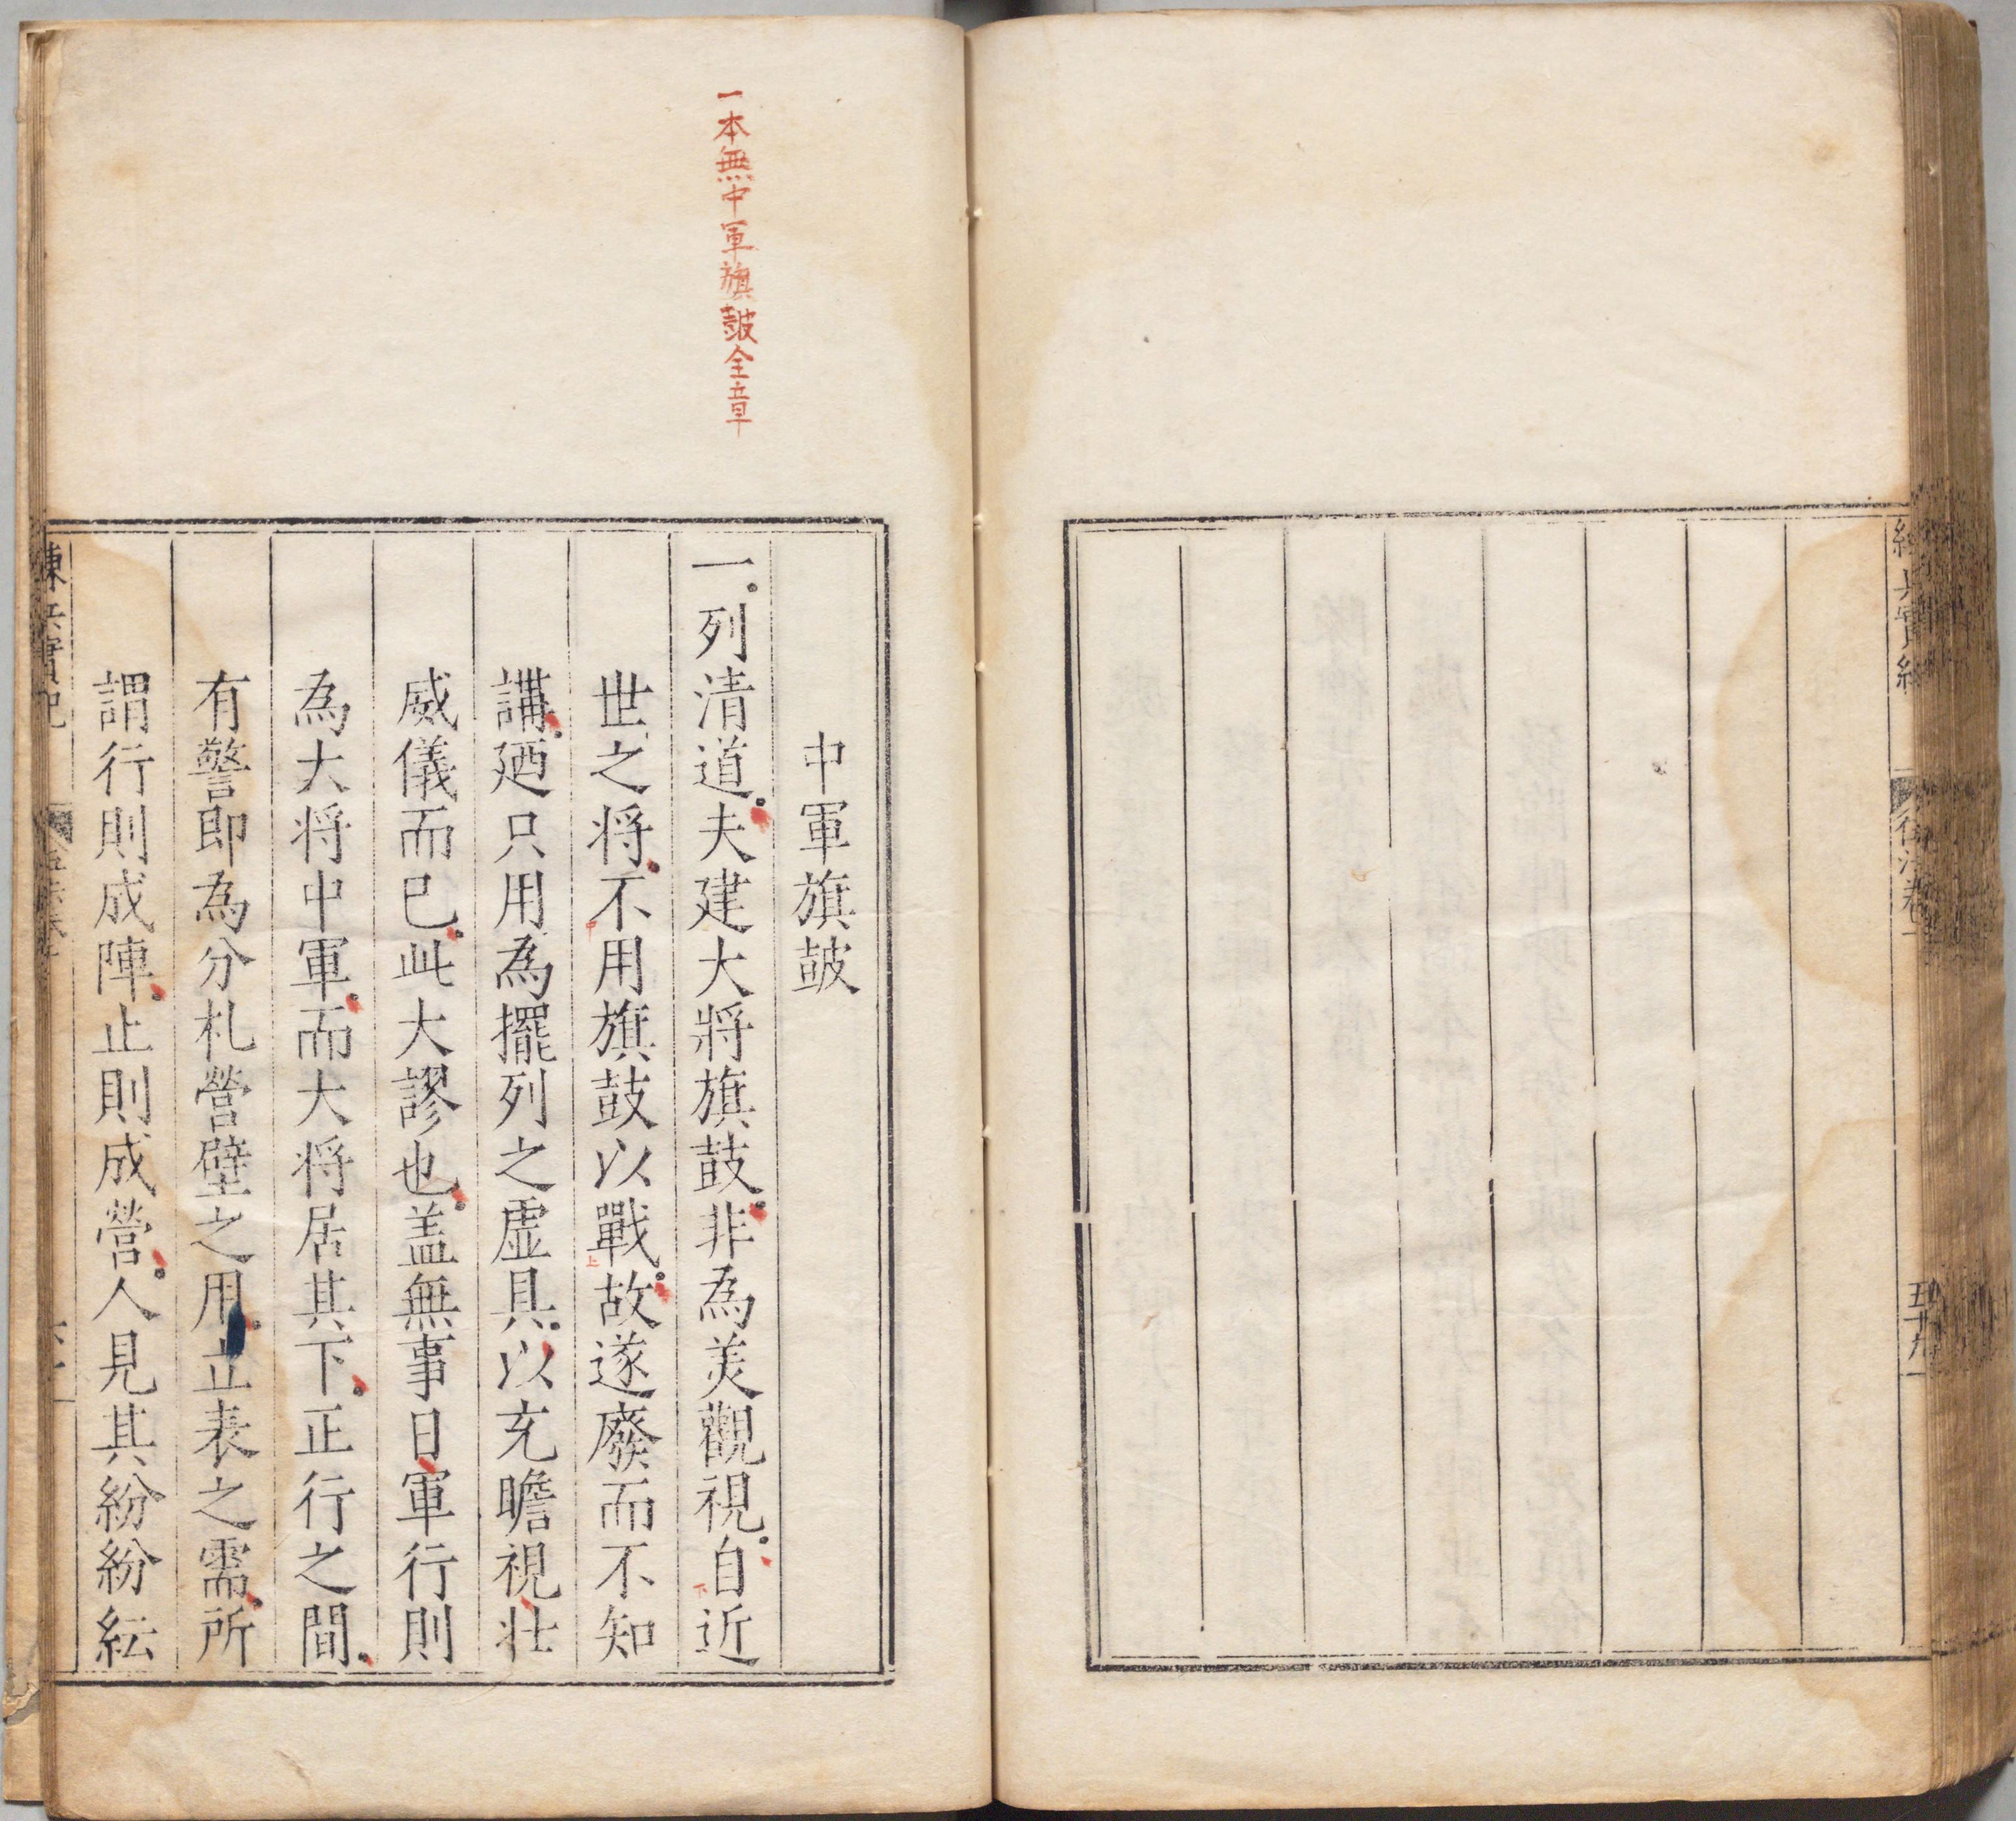 五十九
一本無中軍旗皷全章
中軍旗皷
一列清道夫建大將旗鼓非為美觀視自近
世之将不用旗鼓以戰故遂廢而不知
講廼只用為擺列之虛具以充瞻視壮
威儀而已此大謬也盖無事日軍行則
為大将中軍而大将居其下正行之間
有警即為分札營壁之用立表之需所
謂行則成陣止則成營人見其紛紛紜